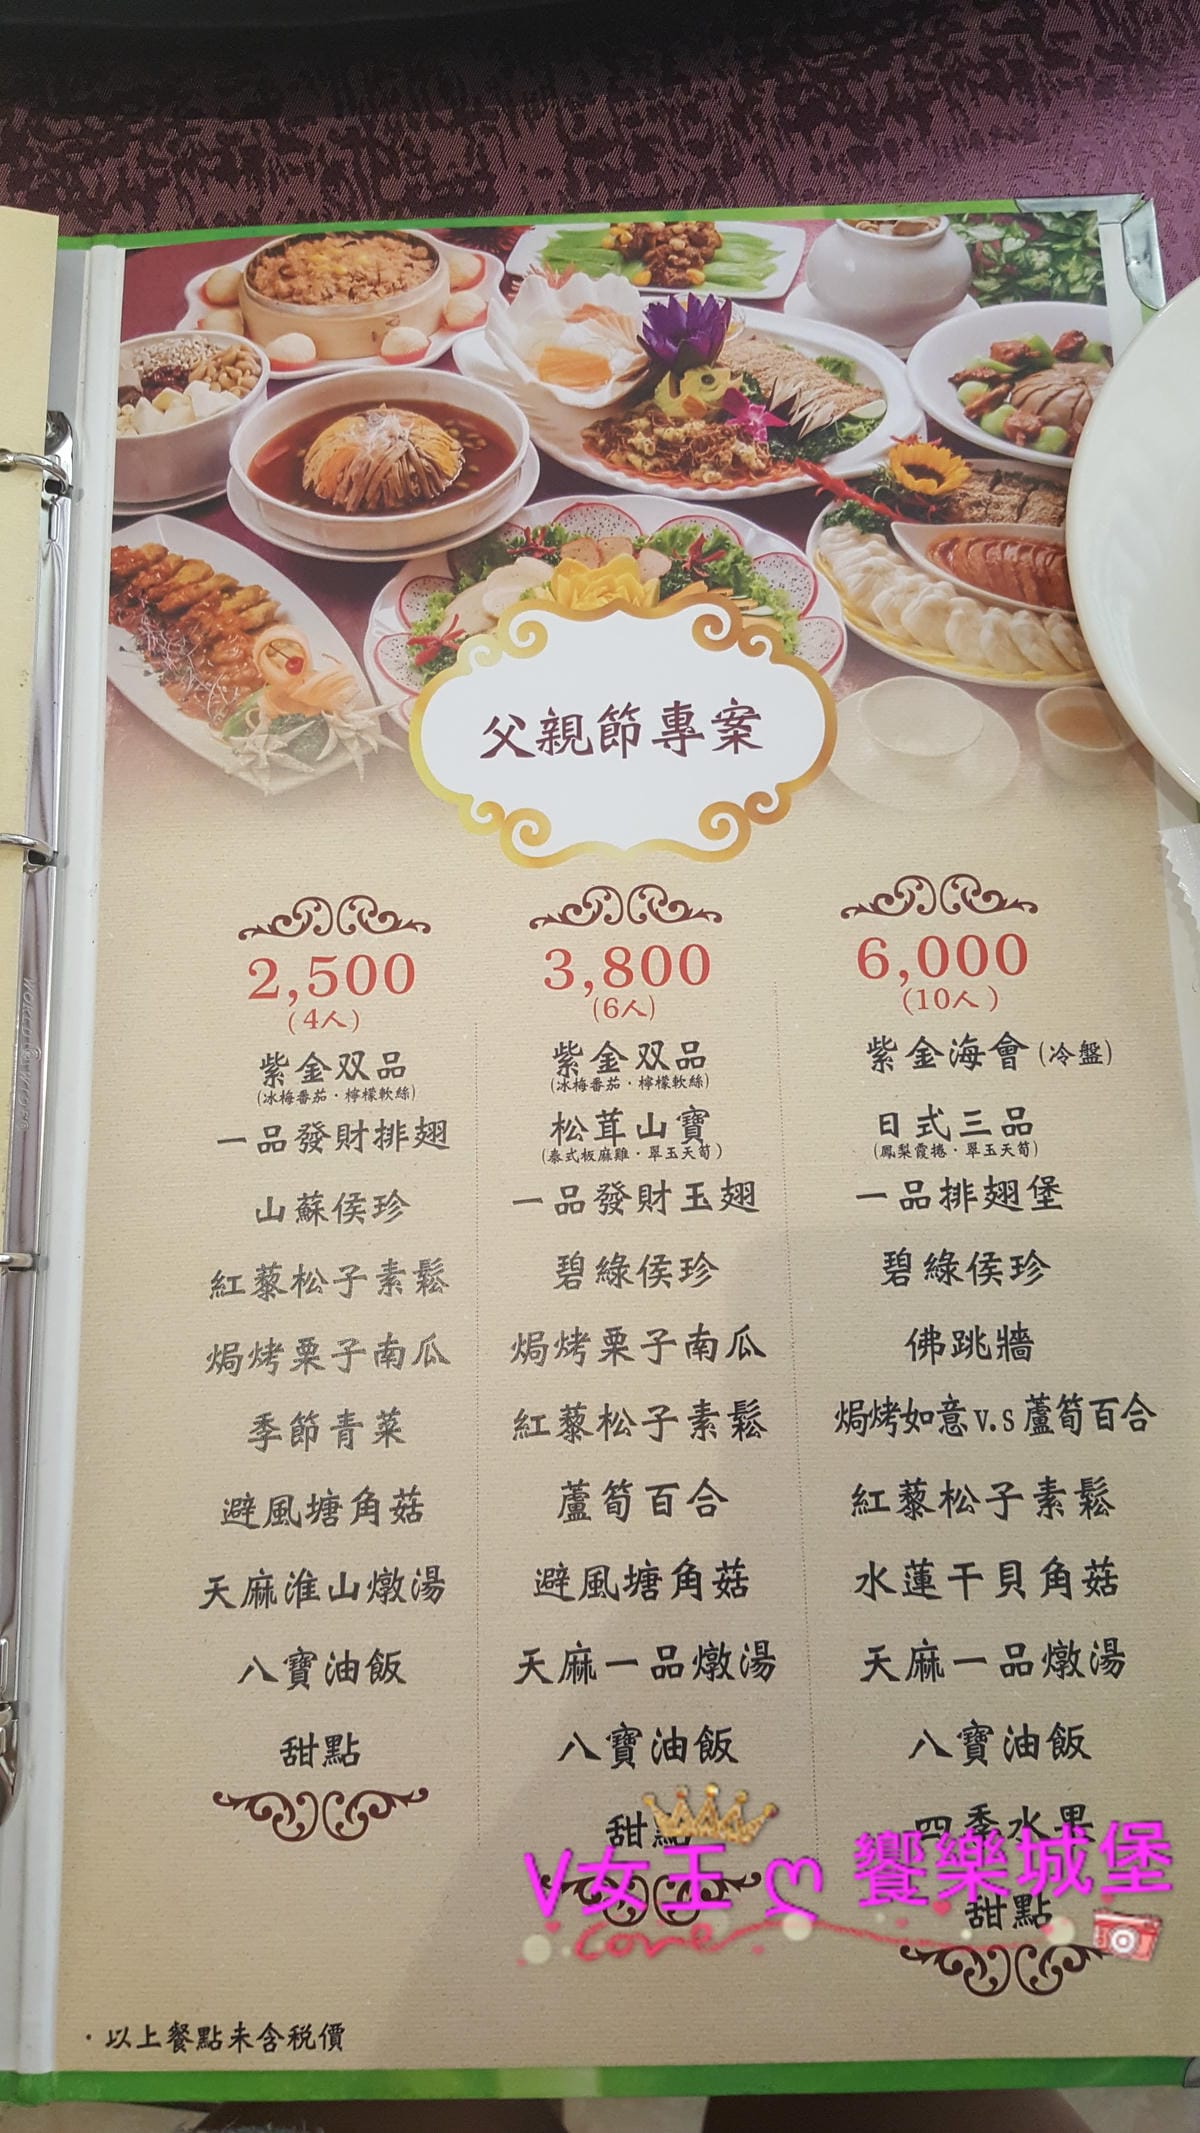 父親節專案
2,500
(4人)
紫金双品
(冰梅番茄·檸檬軟絲)
一品發財排翅
山蘇侯珍
紅藜松子素鬆
焗烤栗子南瓜
季節青菜
避風塘角菇
天麻淮山燉湯
八寶油飯
甜點
3,800
(6人)
紫金双品
(冰梅番茄·檸檬軟絲)
松茸山寶
(泰式板麻雞·翠玉天筍)
一品發財玉翅
碧綠侯珍
焗烤栗子南瓜
紅藜松子素鬆
蘆筍百合
避風塘角菇
天麻一品燉湯
八寶油飯
甜點
6,000
(10人)
紫金海會(冷盤)
日式三品
(鳳梨霞捲·翠玉天筍)
一品排翅堡
碧綠侯珍
佛跳牆
焗烤如意v.s蘆筍百合
紅藜松子素鬆
水蓮干貝角菇
天麻一品燉湯
八寶油飯
四季水果
甜點
V女王ღ饗樂城堡
·以上餐點未含稅價